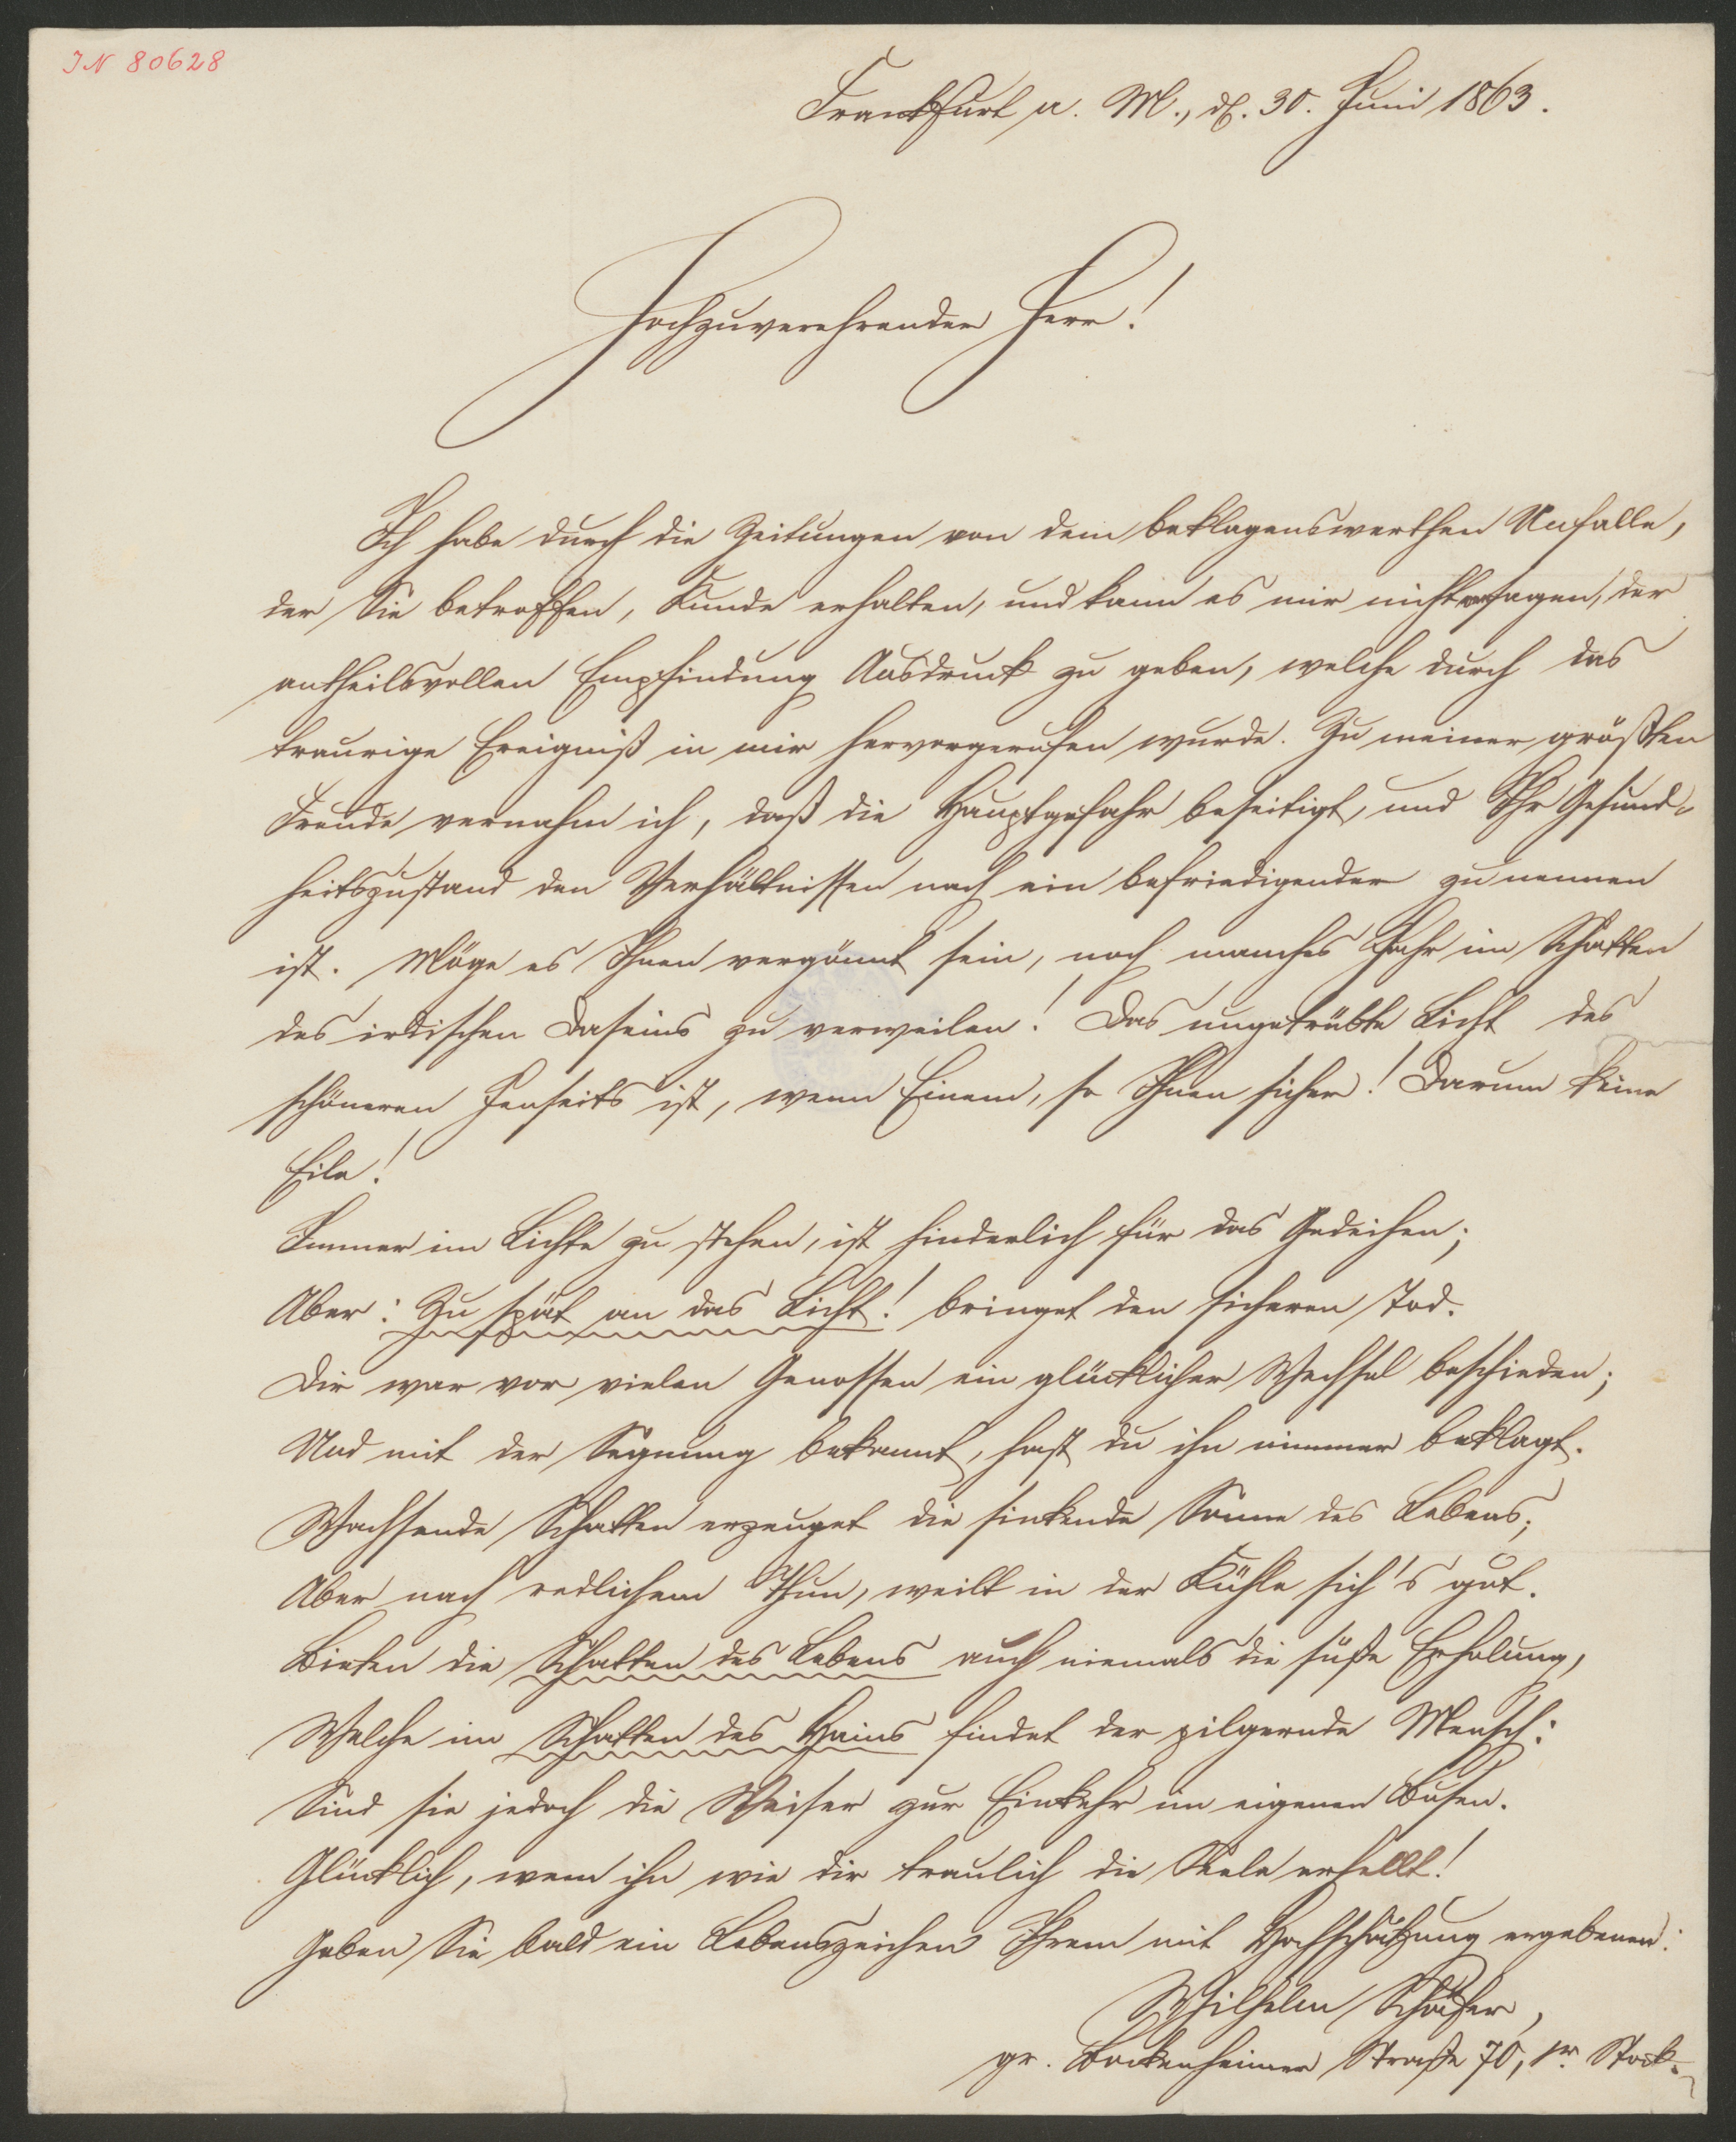 IN 80628
Frankfurt a. M., d. 30. Juni 1863.
Hochzuverehrender Herr!
Ich habe durch die Zeitungen von dem beklagenswerthen Unfalle,
der Sie betroffen, Kunde erhalten, und kann es mir nicht versagen, der
antheilsvollen Empfindung Ausdruck zu geben, welche durch das
traurige Ereigniß in mir hervorgerufen wurde. Zu meiner größten
Freude vernahm ich, daß die Hauptgefahr beseitigt, und Ihr Gesund-
heitszustand den Verhältnissen nach ein befriedigender zu nennen
ist. Möge es Ihnen vergönnt sein, noch manches Jahr im Schatten
des irdischen Daseins zu verweilen! Das ungetrübte Licht des
schöneren Jenseits ist, wenn Einem, so Ihnen sicher! Darum keine
Eile!
Immer im Lichte zu stehen, ist hinderlich für das Gedeihen;
Aber: Zu spät an das Licht! bringet den sicheren Tod.
Dir war vor vielen Genossen ein glücklicher Wechsel beschieden;
Und mit der Segnung bekannt, hast du ihn nimmer beklagt.
Wachsende Schatten erzeuget die sinkende Sonne des Lebens;
Aber nach redlichem Thun, weilt in der Kühle sich's gut.
Bieten die Schatten des Lebens auch niemals die süße Erholung,
Welche im Schatten des Hains findet der pilgernde Mensch:
Sind sie jedoch die Weiser zur Einkehr im eigenen Busen.
Glücklich, wem ihn wie dir traulich die Seele erhellt!
Geben Sie bald ein Lebenszeichen Ihrem mit Hochschätzung ergebenen:
Wilhelm Schäfer,
gr. Bockenheimer Straße 70, 1r. Stock.